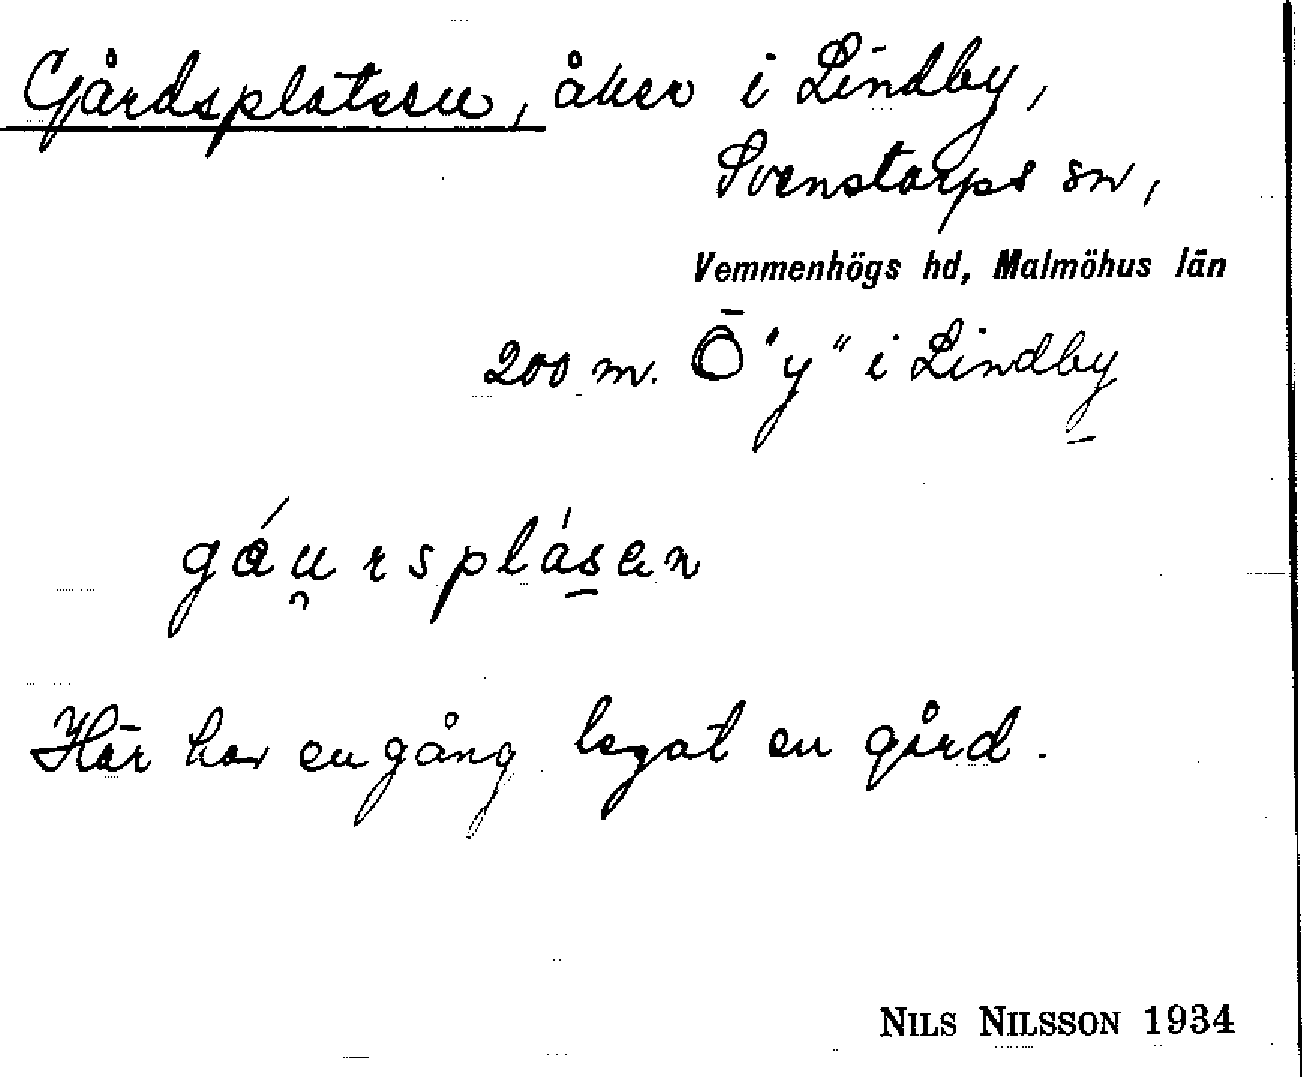 Gårdsplatsen, åker i Lindby,
Svenstorps sn,
Vemmenhögs hd, Malmöhus län
200 m. Ö "y" i Lindby
gáu̯rsplásen
Här har en gång legat en gård.
NILS NILSSON 1934